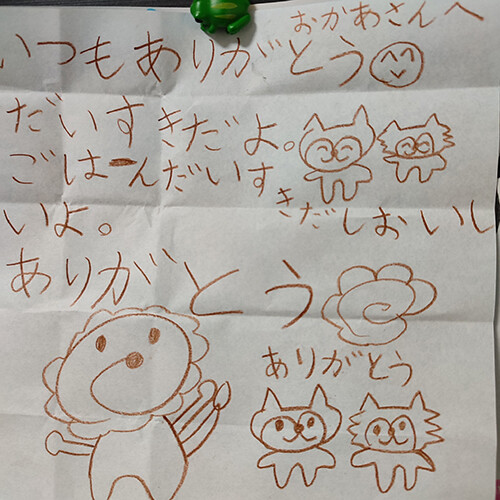 おかあさんへ
いつもありがとう
だいすきだよ。
ごはーんだいす
きだしおいし
いよ。
ありがとう
ありがとう